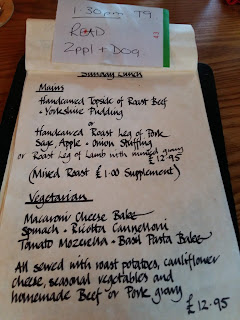 1.30pm T9
READ
2ppl + DOG
Sunday Lunch
Mains
Handcarved Topside of Roast Beef
+ Yorkshire Pudding
or
Handcarved Roast Leg of Pork
Sage, Apple + Onion Stuffing
or Roast Leg of Lamb with minted gravy
£12.95
(Mixed Roast £1.00 Supplement)
Vegetarian
Macaroni Cheese Bake
Spinach + Ricotta Cannelloni
Tomato Mozzella + Basil Pasta Bake
All served with roast potatoes, cauliflower
cheese, seasonal vegetables and
homemade Beef or Pork gravy
£12.95